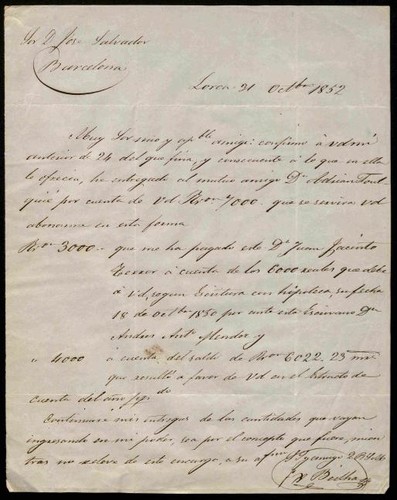 Sor D. Jose Salvador
Barcelona
Lorca 31 Octbre 1852
Muy Sor mio y amigo: confirmo á vd mi
anterior de 24 del que fina, y consecuente á lo que en ella
le ofrecia, he entregado al mutuo amigo Dn Adrian
por cuenta de Vd Rvon 7000. que se servira vd
abonarme en esta forma
Rvon 3000.. que me ha pagado este Dn Juan Jacinto
á cuenta de los 6000 reales que debe
á Vd, segun Escritura con hipoteca, su fecha
18 de Octbre 1850 por ante este Escribano Dn
Andres Anto
" 4000 á cuenta del saldo de Rvon 6022.. 23 mrs
que resultó á favor de Vd en el Estracto de
cuenta del año
Continuaré mis entregas de las cantidades que vayan
ingresando en mi poder, sea por el concepto que fuere, mien
tras no releve de este encargo, a su